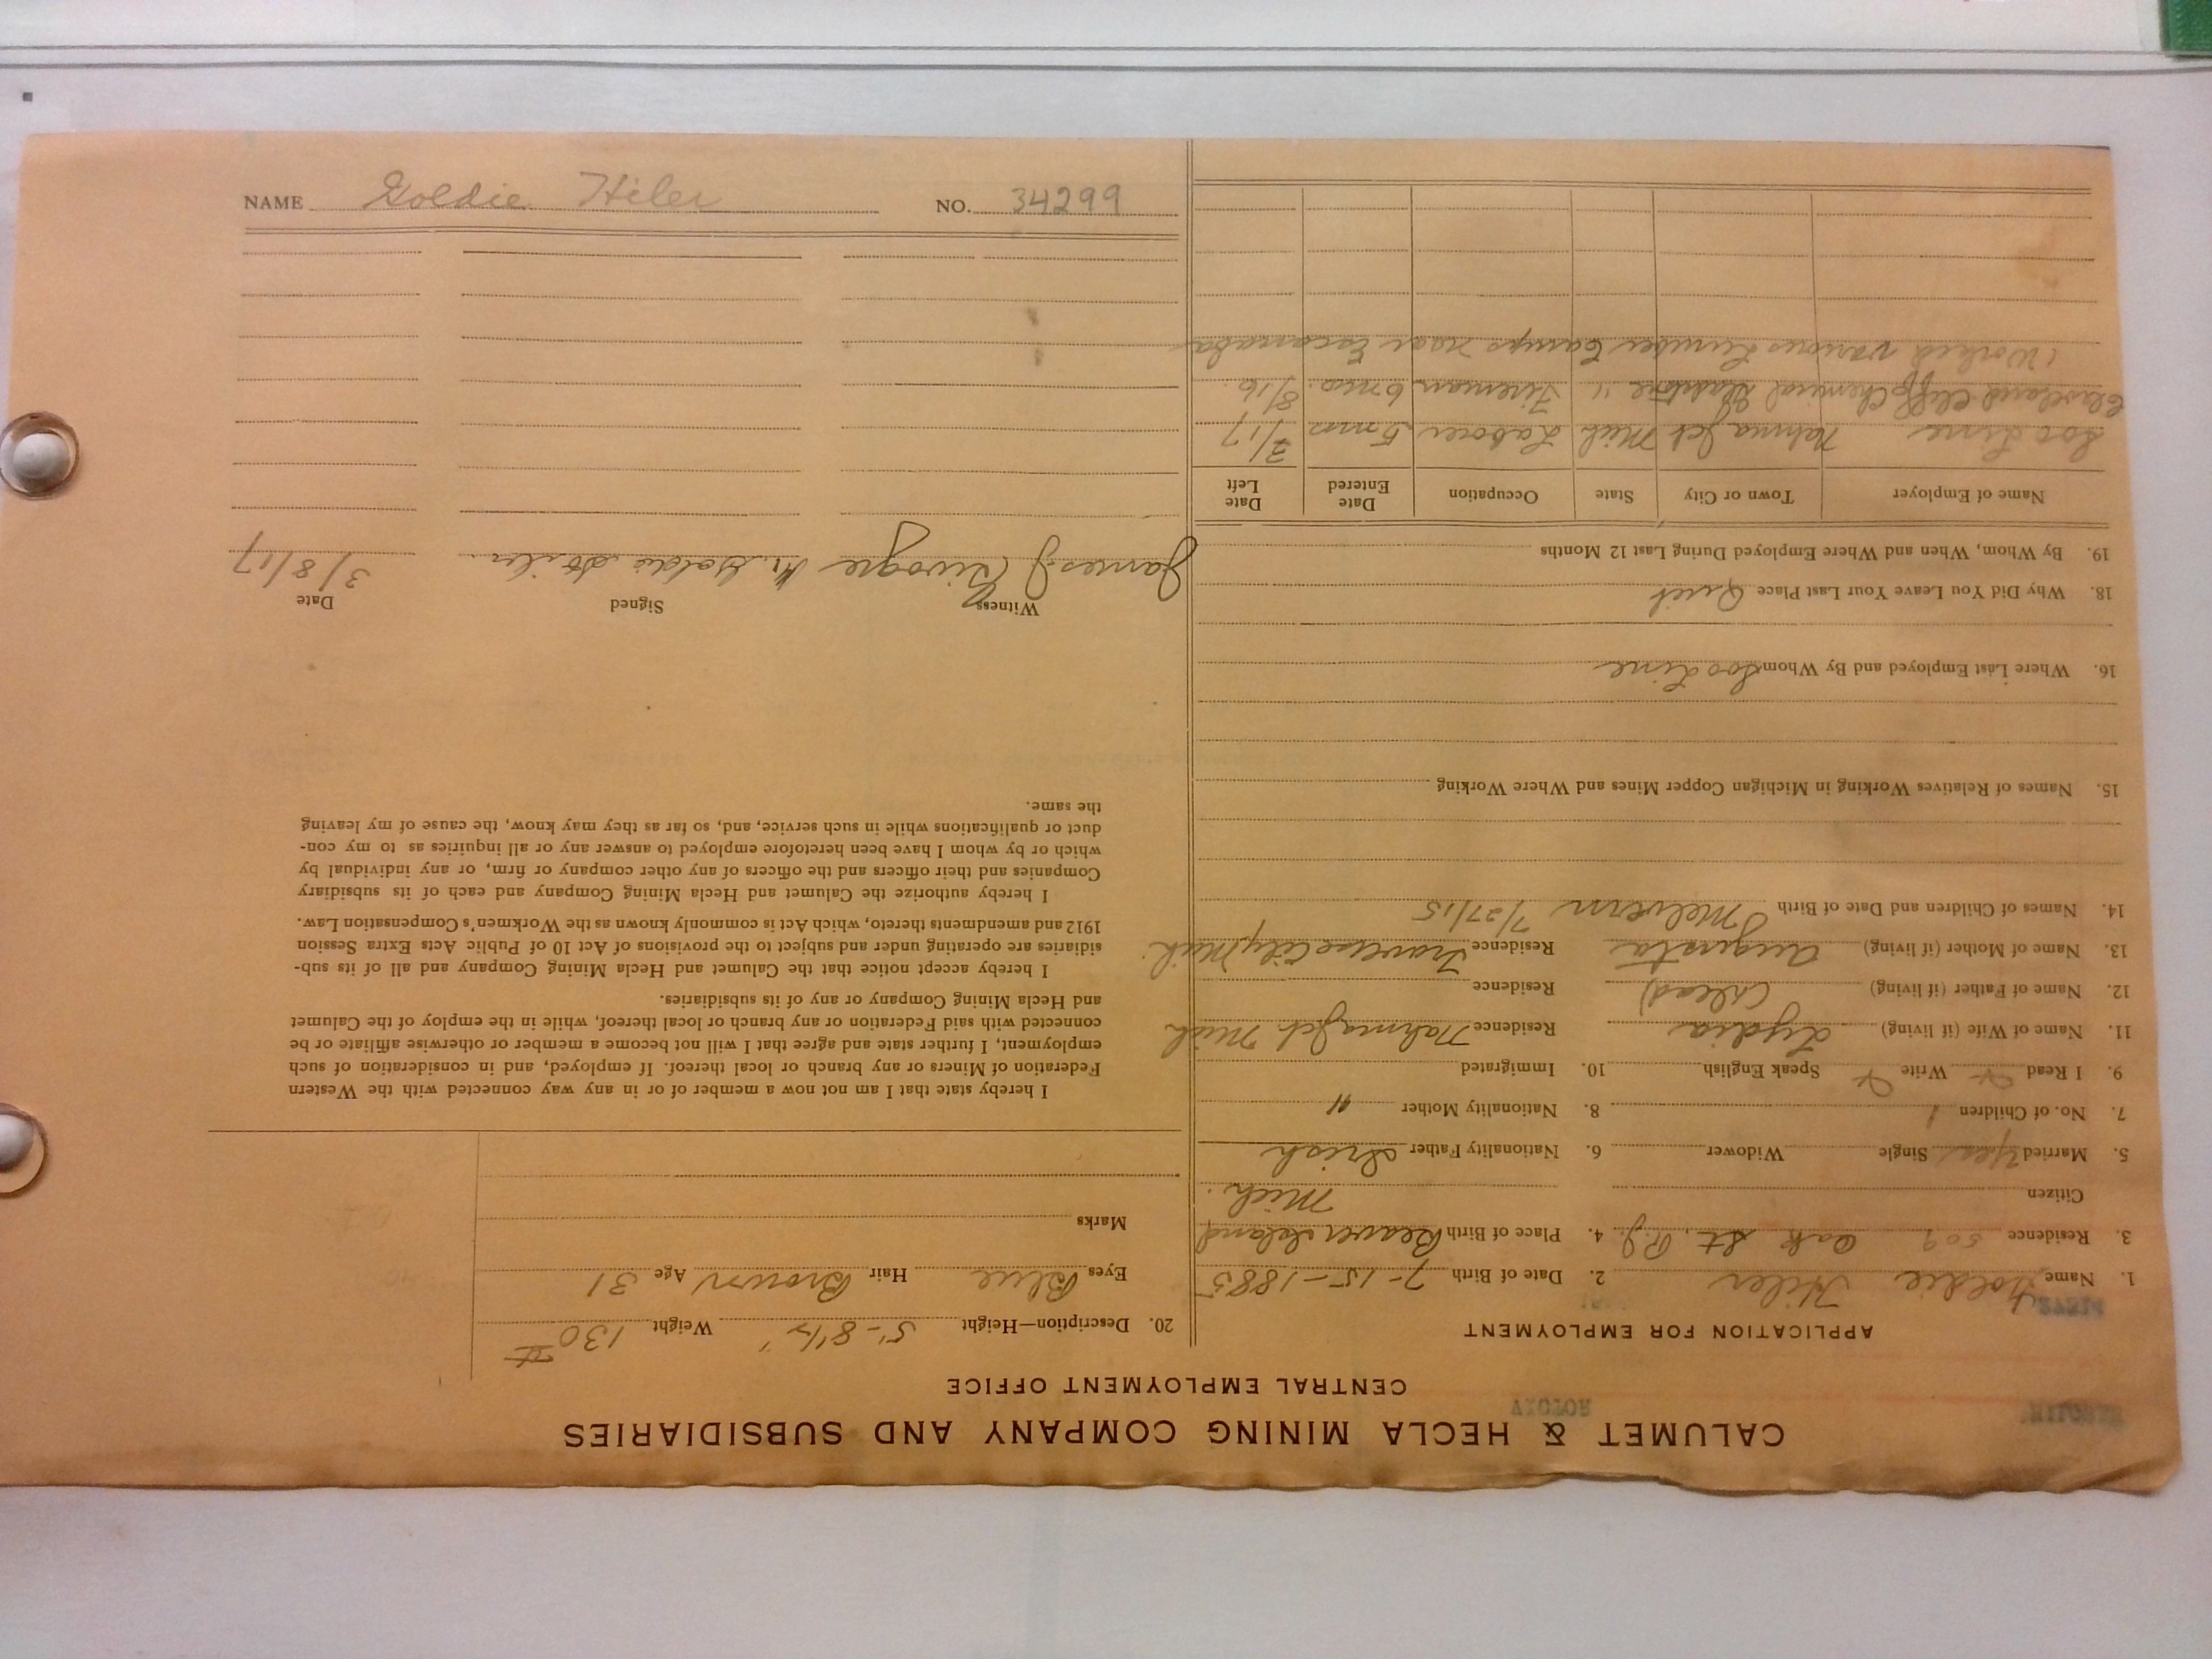 CALUMET & HECLA MINING COMPANY AND SUBSIDIARIES
CENTRAL EMPLOYMENT OFFICE
APPLICATION FOR EMPLOYMENT
1. Name Goldie Hiler 2. Date of Birth 7-15-1885
3. Residence 509 Oak St., R.J. 4. Place of Birth Beaver Island
Citizen Mich.
5. Married Yes Single Widower 6. Nationality Father Irish
7. No. of Children 1 8. Nationality Mother "
9. I Read Write Speak English 10. Immigrated
11. Name of Wife (if living) Lydia Residence Nahma Jct Mich
12. Name of Father (if living) (Dead) Residence
13. Name of Mother (if living) Augusta Residence Traverse City, Mich.
14. Names of Children and Date of Birth Melvern 7/27/15
15. Names of Relatives Working in Michigan Copper Mines and Where Working
16. Where Last Employed and By Whom Soo Line
18. Why Did You Leave Your Last Place Quit
19. By Whom, When and Where Employed During Last 12 Months
Name of Employer Town or City State Occupation Date Entered Date Left
Soo Line Nahma Jct Mich Laborer 5 mos 3/17
Cleveland Cliff Chemical Gladstone " Fireman 6 mos. 8/16.
(Worked various Lumber Camps near Escanaba
20. Description—Height 5'-8 1/2" Weight 130 #
Eyes Blue Hair Brown Age 31
Marks
I hereby state that I am not now a member of or in any way connected with the Western
Federation of Miners or any branch or local thereof. If employed, and in consideration of such
employment, I further state and agree that I will not become a member or otherwise affiliate or be
connected with said Federation or any branch or local thereof, while in the employ of the Calumet
and Hecla Mining Company or any of its subsidiaries.
I hereby accept notice that the Calumet and Hecla Mining Company and all of its sub-
sidiaries are operating under and subject to the provisions of Act 10 of Public Acts Extra Session
1912 and amendments thereto, which Act is commonly known as the Workmen's Compensation Law.
I hereby authorize the Calumet and Hecla Mining Company and each of its subsidiary
Companies and their officers and the officers of any other company or firm, or any individual by
which or by whom I have been heretofore employed to answer any or all inquiries as to my con-
duct or qualifications while in such service, and, so far as they may know, the cause of my leaving
the same.
Witness Signed Date
James J. Goldie Hiler 3/8/17
NAME Goldie Hiler NO. 34299